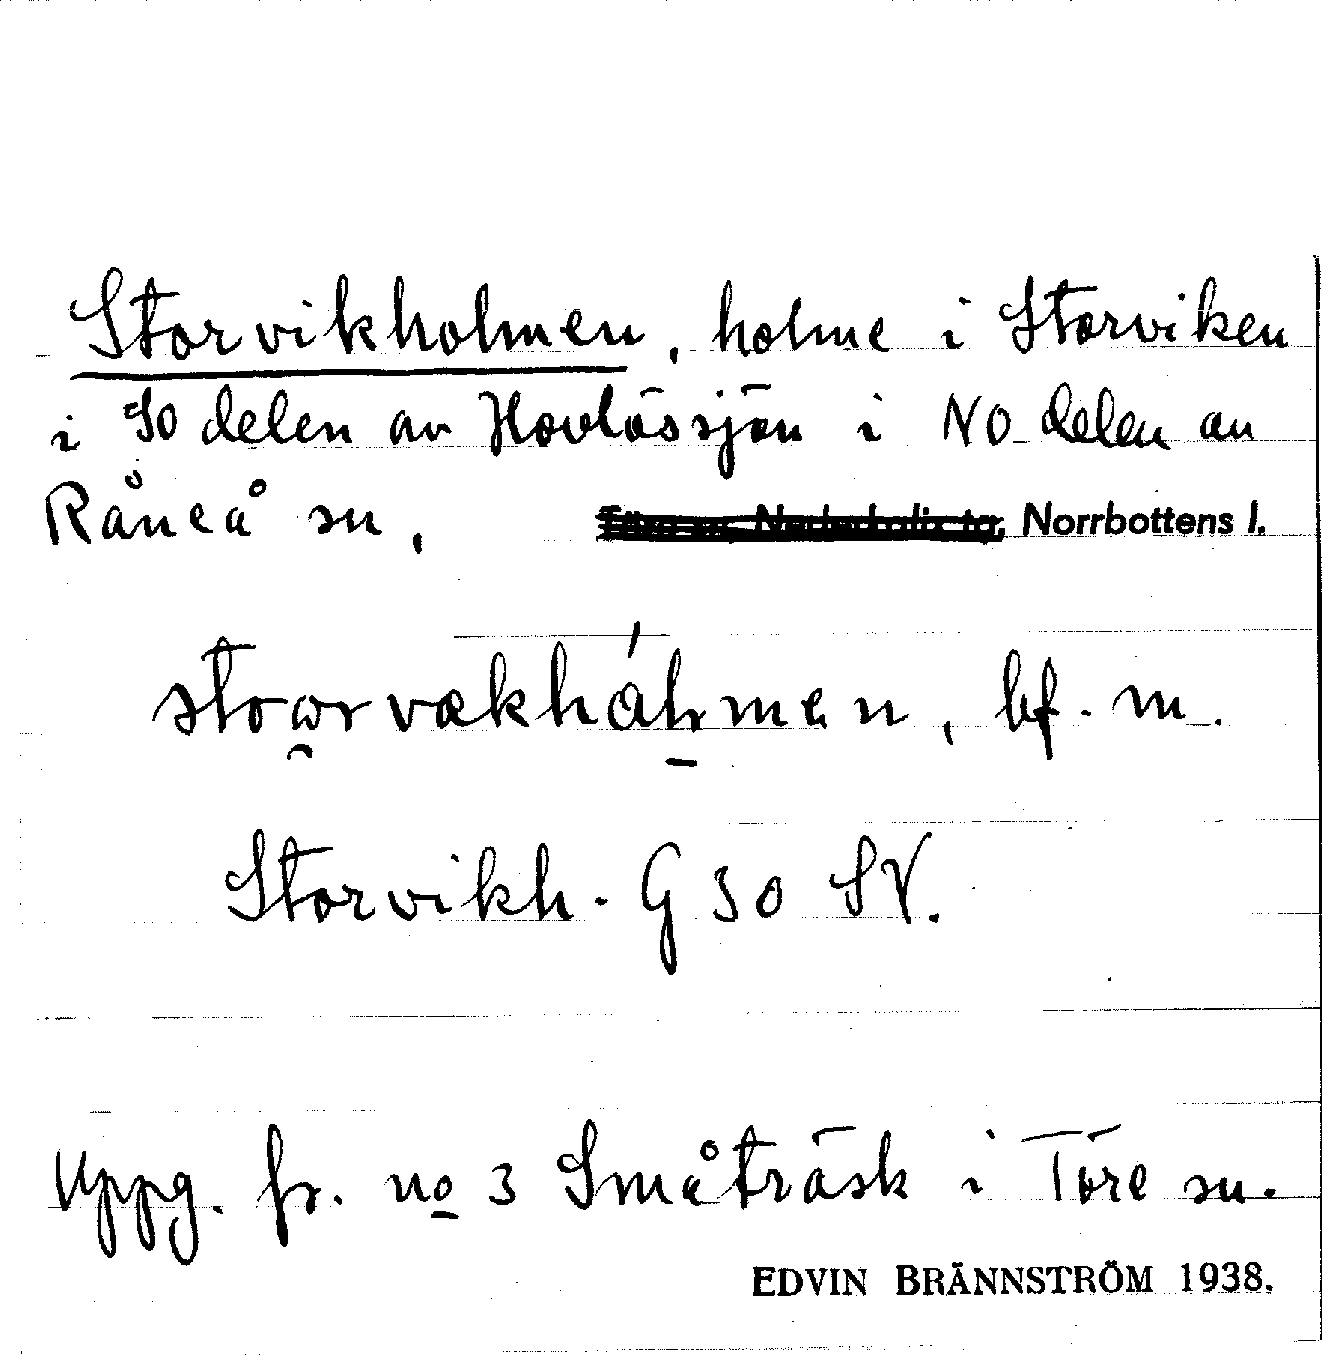 Storvikholmen, holme i Storviken
i SO delen av Hovlössjön i NO delen av
Råneå sn, Töre sn, Nederkalix tg, Norrbottens l.
bf. m.
Storvikh. G 30 SV.
Uppg. fr. no 3 Småträsk i Töre sn.
EDVIN BRÄNNSTRÖM 1938.